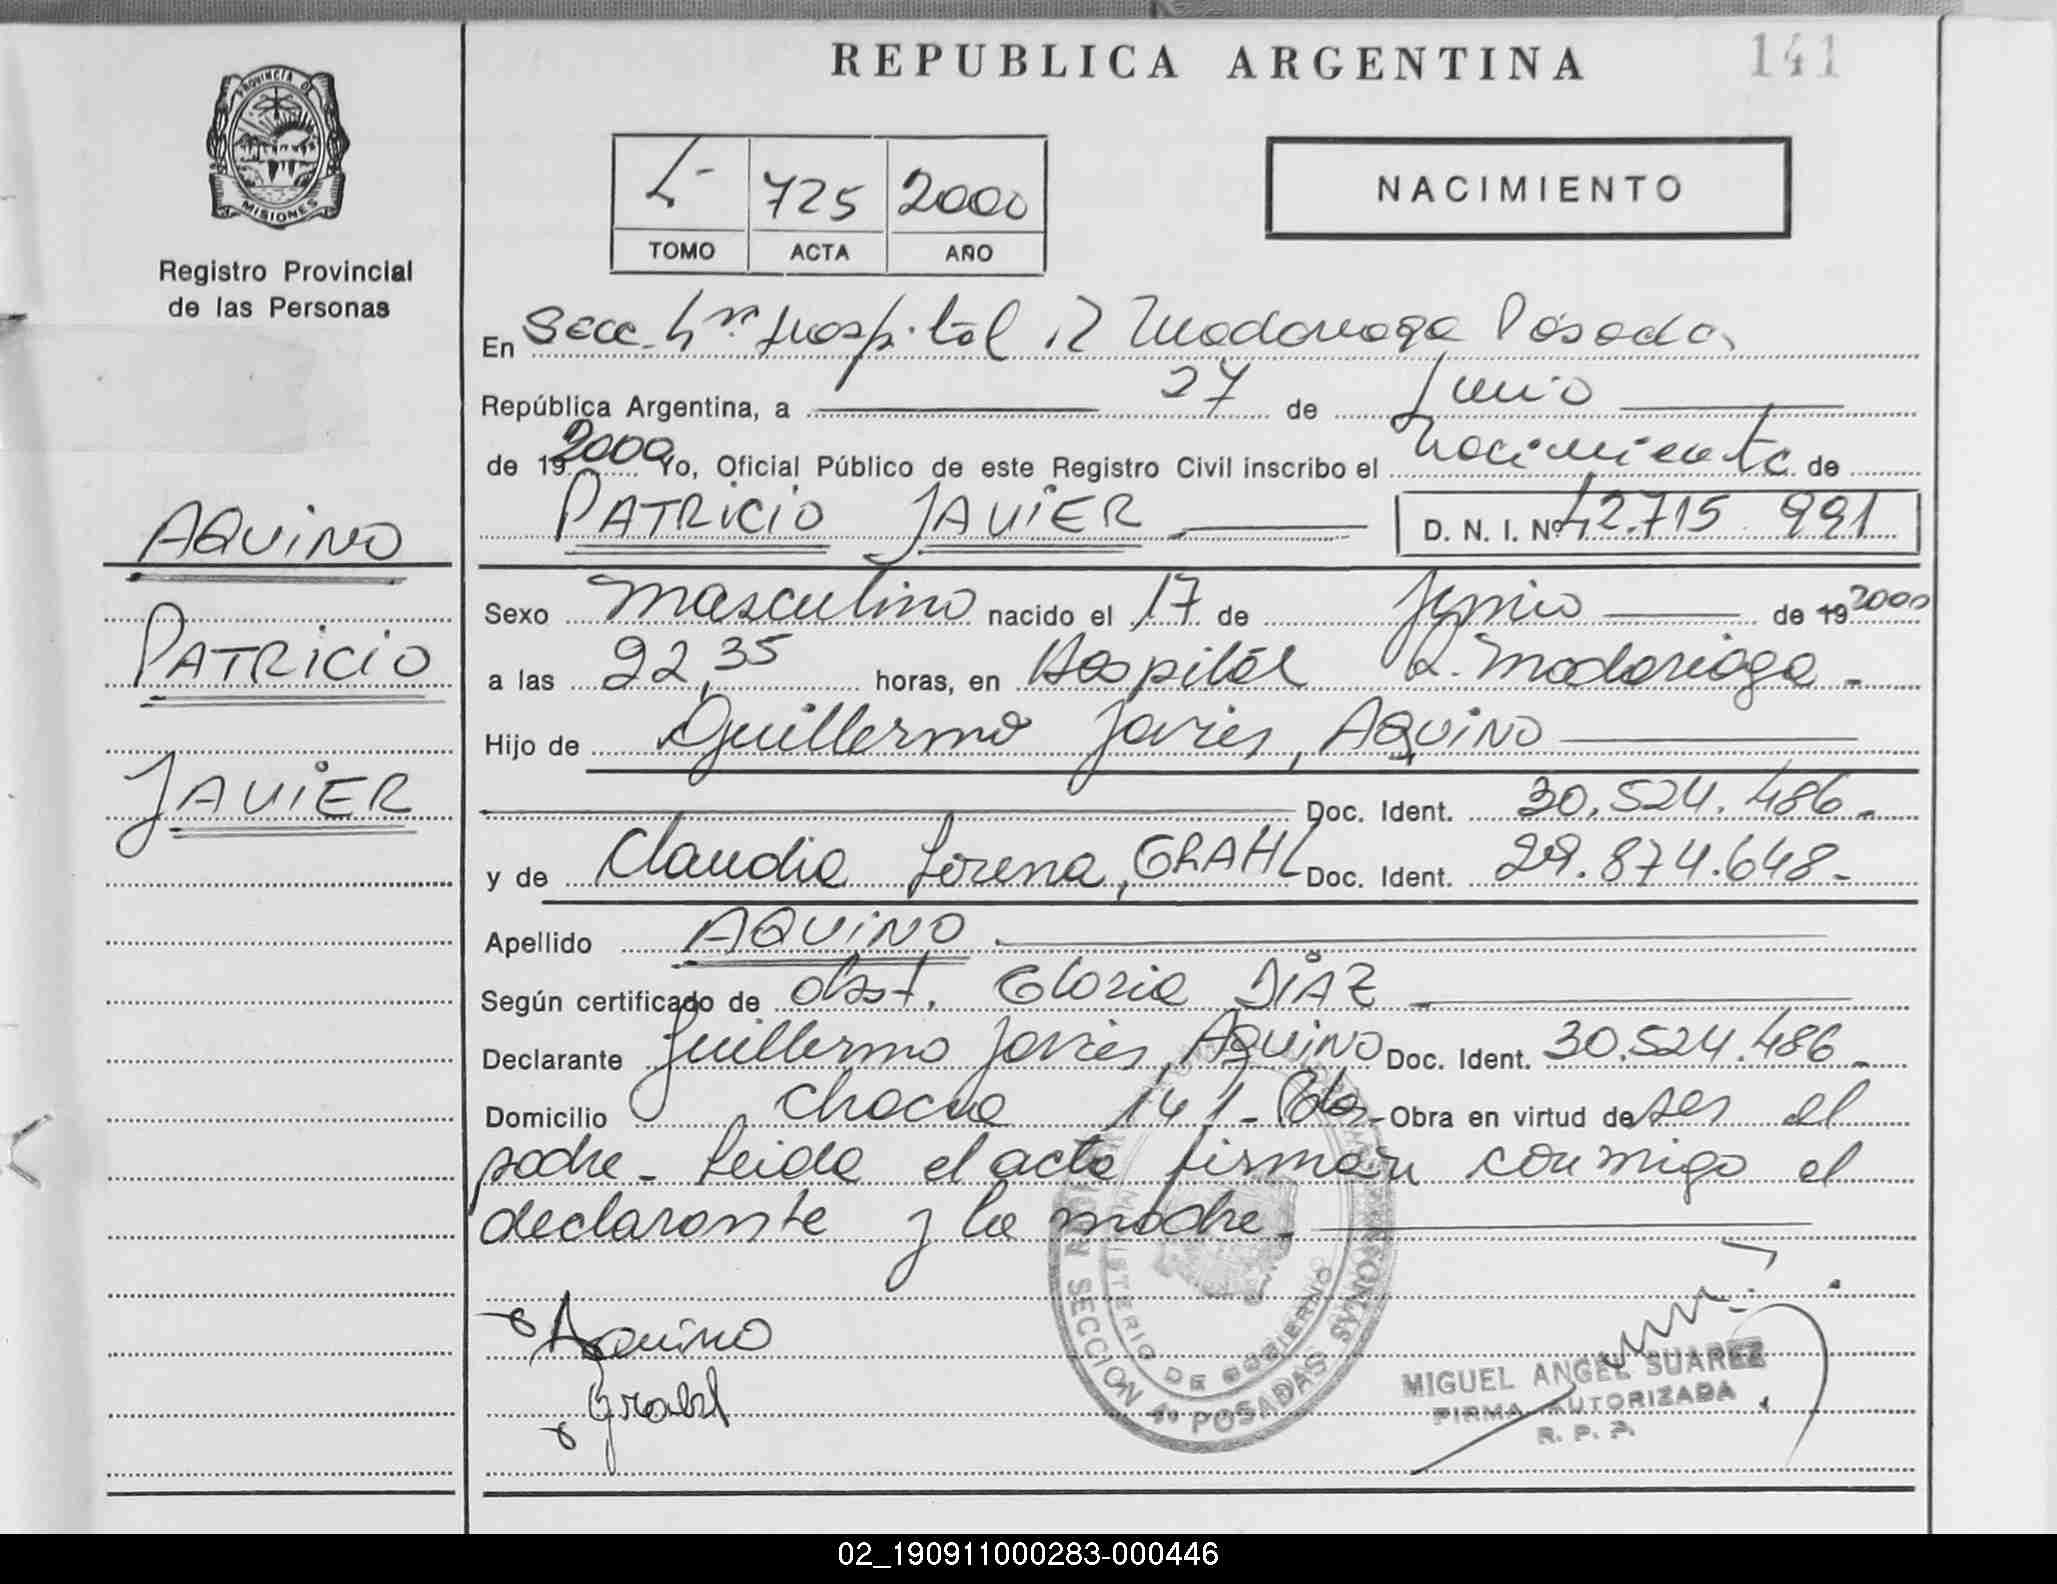 REPUBLICA ARGENTINA
141
PROVINCIA DE
MISIONES
Registro Provincial
de las Personas
NACIMIENTO
725 2000
TOMO ACTA AÑO
En Secc. Hospital R Madariaga Posadas
República Argentina, a 27 de Junio
de 19 2000 Yo, Oficial Público de este Registro Civil inscribo el nacimiento de
PATRICIO JAVIER D. N. I. Nº 42.715 991
AQUINO
PATRICIO
JAVIER
Sexo masculino nacido el 17 de Junio de 19 2000
a las 22,35 horas, en Hospital R. Madariaga -
Hijo de Guillermo Javier, AQUINO
Doc. Ident. 30.524.486-
y de Claudia Lorena, GRAHL Doc. Ident. 29.874.648-
Apellido AQUINO
Según certificado de obst. Gloria DIAZ
Declarante Guillermo Javier, AQUINO Doc. Ident. 30.524.486-
Domicilio 141- Pdas- Obra en virtud de ser el
padre- Leida el acta firman conmigo el
declarante y la madre-
Aquino
Grahl
SECCION 4º POSADAS
MINISTERIO DE GOBIERNO
MIGUEL ANGEL SUAREZ
FIRMA AUTORIZADA
R. P. P.
02_190911000283-000446